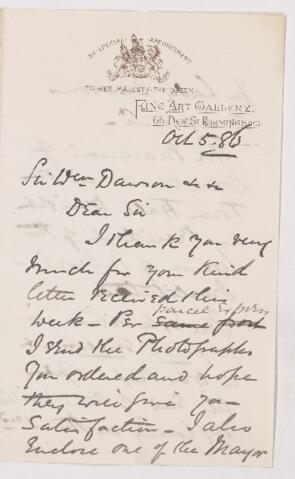 BY SPECIAL APPOINTMENT
TO HER MAJESTY THE QUEEN
FINE ART GALLERY.
66 NEW ST BIRMINGHAM.
Oct 5. 86
Sir Wm Dawson & &
Dear Sir
I thank you very
much for your kind
letter received this
parcel express
week – Per same post
I send the Photographs
you ordered and hope
they will give you
satisfaction – I also
Enclose one of the Mayor